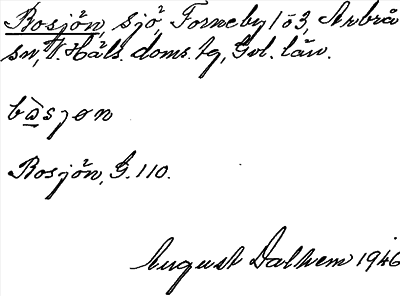 Bosjön, sjö, Forneby 1 ö 3, Arbrå
sn, V. Häls. doms. tg, Gvl. län.
bòsjøn
Bosjön, G. 110.
August Dalhem 1946